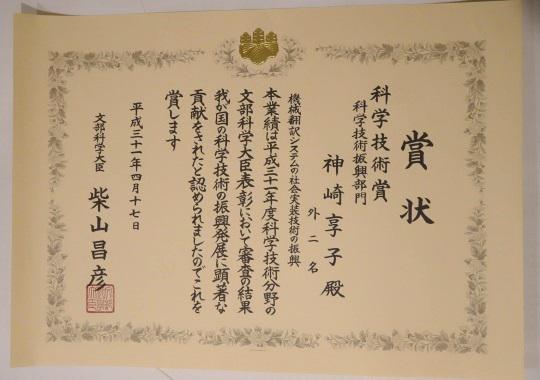 賞状
科学技術賞
科学技術振興部門
神崎享子殿
外二名
機械翻訳システムの社会実装技術の振興
本業績は平成三十一年度科学技術分野の
文部科学大臣表彰において審査の結果
我が国の科学技術の振興発展に顕著な
貢献をされたと認められましたのでこれを
賞します
平成三十一年四月十七日
文部科学大臣 柴山昌彦